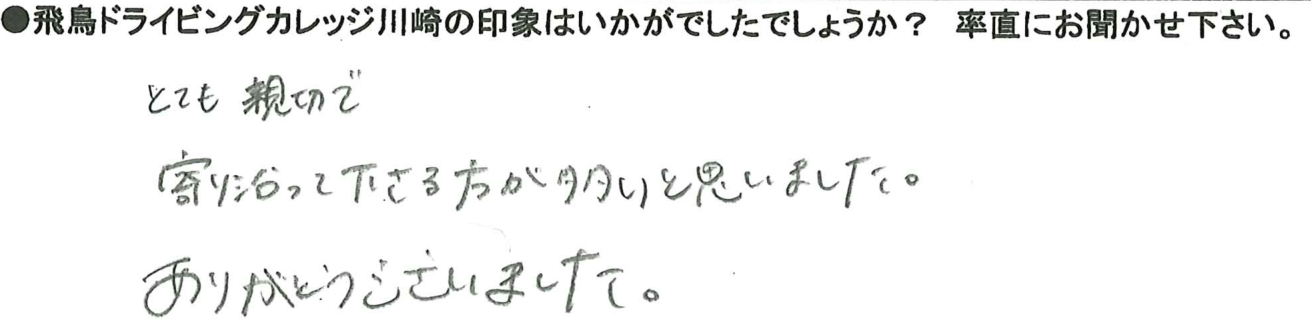 ●飛鳥ドライビングカレッジ川崎の印象はいかがでしたでしょうか? 率直にお聞かせ下さい。
とても 親切で
寄り沿って下さる方が多いと思いました。
ありがとうございました。